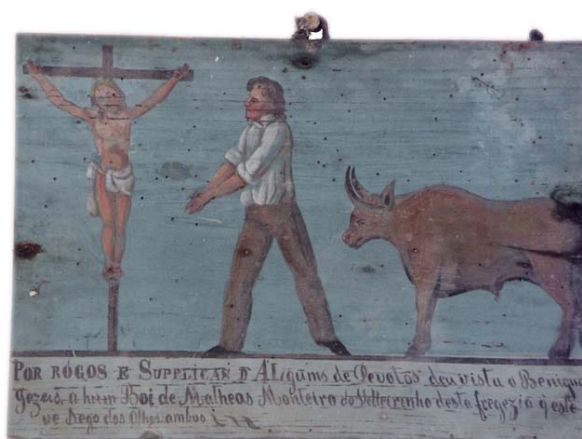 POR RÓGOS E SUPPLICAS D ALguns de Devotos deu vista o Benigno
a hum Boi de Matheas Monteiro do desta fregezia q este
ve Sego dos Olhos ambos